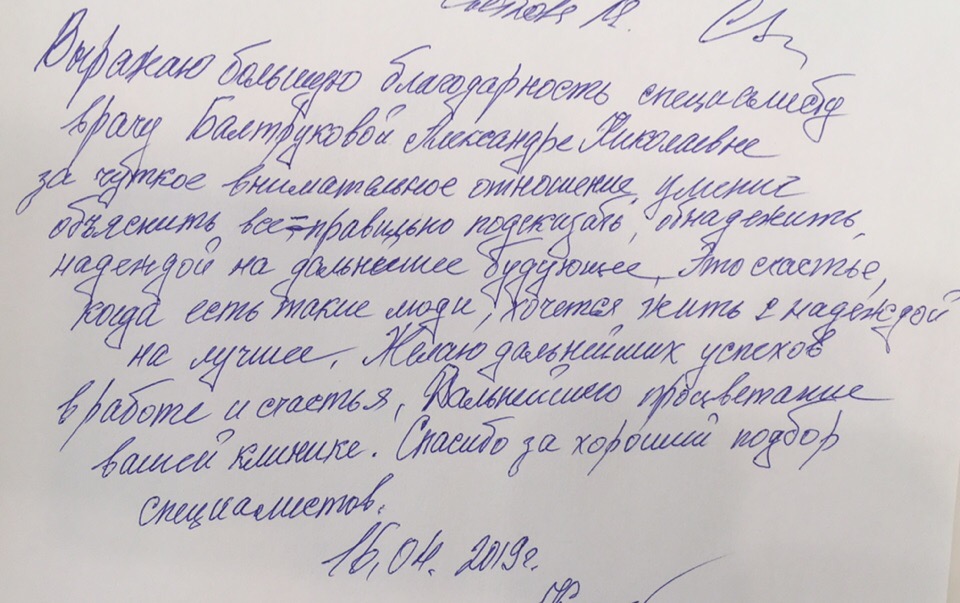 Выражаю большую благодарность специалисту
врачу Балтруковой Александре Николаевне
за чуткое внимательное отношение, умение
объяснить все, правильно подсказать, обнадежить,
надеждой на дальнейшее будующее. Это счастье,
когда есть такие люди, хочется жить с надеждой
на лучшее. Желаю дальнейших успехов
в работе и счастья, Дальнейшего процветание
вашей клинике. Спасибо за хороший подбор
специалистов.
16.04. 2019г.